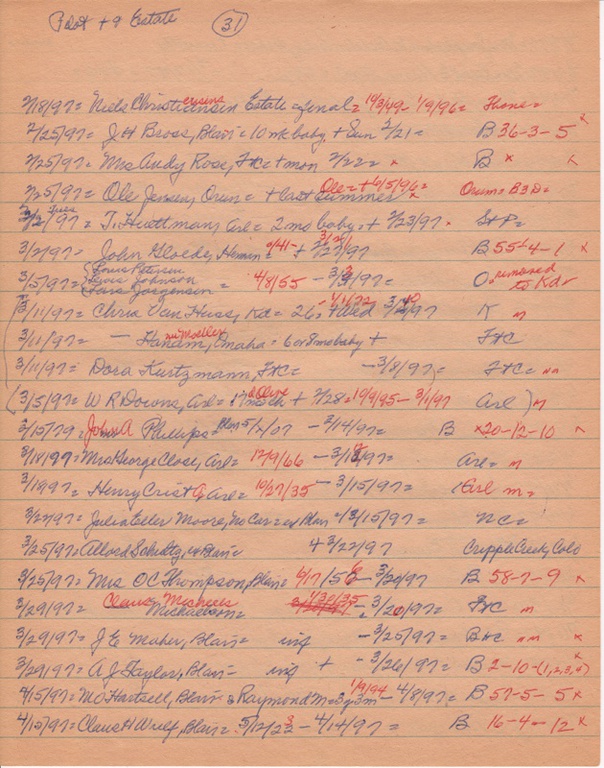 Pilot + 9 Estate (31)
2/18/97 = Niels Christiansen Estate = final = 10/3/49 - 1/9/96 =
cousins
2/25/97 = J H Bross, Blair = 10 mo baby, + Sun 2/21 = B 36-3-5 x
2/25/97 = Mrs Andy Rose, FtC + mon 2/22 = x B x x
2/25/97 = Ole Jensen, Orum = + last summer Orum = B3D =
Ole = + 6/5/96 = x
3/2/97 = T. Huettman, Arl = 2 mo baby = + 2/23/97 x
3/2/97 = John Gloede, Herman = + 2/27/97 B 55-4-1 x
3/5/97 = Louis Petersen 4/8/55 - 3/3/97 = O. removed to Kd
Johnson
Lars Jorgensen =
3/11/97 = Chris Van Huss, Kd = 26 = killed K m
3/11/97 = — Hansen, Omaha = 6 or 8 mo baby + FtC
3/11/97 = Dora Kurtzmann, FtC = - 3/8/97 = FtC = mm
(3/5/97 = W R Downs, Arl = 17 month + 2/28 = 10/9/95 - 3/1/97 Arl ) m
3/15/79 = John A Phillips = Blair 5/2/07 - 3/14/97 = B x 20-12-10 x
3/18/97 = Mrs George Close, Arl = 12/9/66 - 3/18/97 = Arl = m
3/19/97 = Henry Crist, Arl = 10/27/35 - 3/15/97 = Arl m =
3/22/97 = Julia Eller Moore, No Car = Blair + 3/15/97 = NC =
3/25/97 = Allard Schultz, Blair = + 3/22/97 Cripple Creek, Colo
3/25/97 = Mrs O C Thompson, Blair = 4/17/58 - 3/20/97 B 58-7-9 x
3/29/97 = Claus Michaelson = 1/30/35 - 3/20/97 = FtC m
Michaels
3/29/97 = J E Maher, Blair = inf - 3/25/97 = B + C mm x
3/29/97 = A J Taylor, Blair - inf + - 3/26/97 = B 2-10-(1,2,3,4) x
4/15/97 = M O Hartsell, Blair = Raymond M = 3y3m - 4/8/97 = B 57-5-5 x
1/9/94
4/15/97 = Claus H Wulf, Blair = 5/12/22 - 4/14/97 = B 16-4-12 x